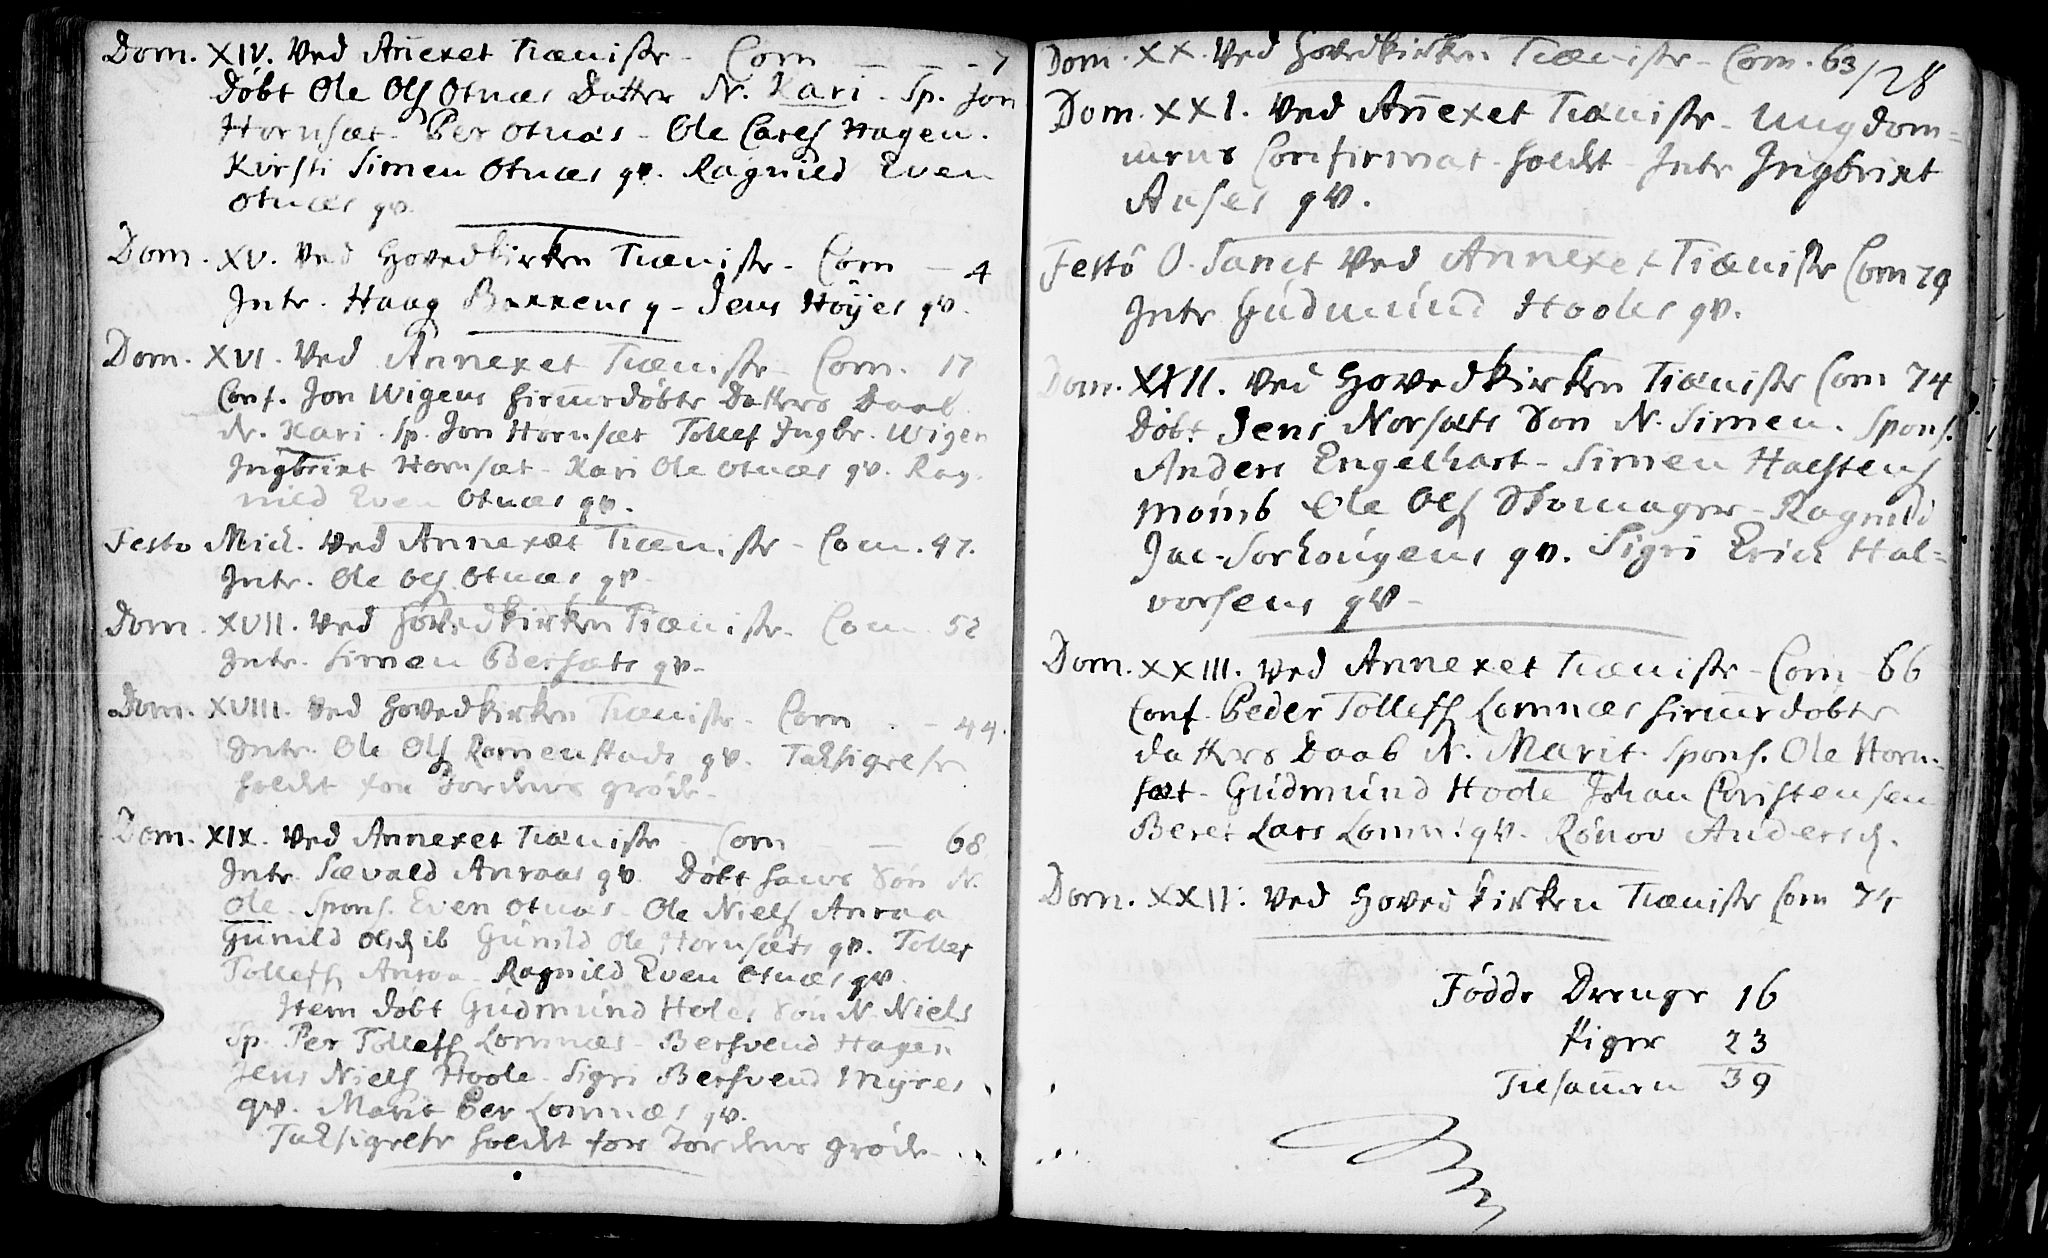 Dom. XIV. Ved Añexet Tieniste - Com - - - 7
Døbt Ole Ols Otnæs Datter N. Kari. Sp. Jon
Hornsæt - Per Otnæs - Ole Carls Hagen.
Kirsti Simen Otnæs qv. Ragnild Even
Otnæs qv.
Dom. XV. Ved Hovedkirken Tieniste - Com - 4
Intr. Haag q - Jens Høyes qv.
Dom. XVI. Ved Annexet Tieniste - Com. 17
Conf. Jon Wigens hiem̄edøbte Datters Daab
N. Kari. Sp. Jon Hornsæt Tollef Ingbr. Wigen
Ingbrixt Hornsæt - Kari Ole Otnæs qv. Rag-
nild Even Otnæs qv.
Festo Mich. Ved Annexet Tieniste - Com. 47.
Intr. Ole Ols Otnæs qv.
Dom. XVII. Ved Hovedkirken Tieniste - Com. 52
Intr. Simen Bersæts qv.
Dom. XVIII. Ved Hovedkirken Tieniste - Com - 44.
Intr. Ole Ols Romenstads qv. Taksigelse
holdt for Jordens grøde -
Dom. XIX. Ved Annexet Tieniste - Com - - 68
Intr. Sævald Anraas qv. Døbt hans Søn N.
Ole. Spons. Even Otnæs - Ole Niels Anraa
Gunild Olsd ib Gunild Ole Hornsæts qv. Tollef
Tollefs Anraa - Ragnild Even Otnæs qv.
Item døbt Gudmund Holes Søn N. Niels
Sp. Per Tollefs Lomnæs - Bersvend Hagen
Jens Niels Hoole - Sigri Bersvend Myres
qv. Marit Per Lomnæs qv.
Taksigelse holdt for Jordens grøde -
Dom. XX. Ved Hovedkirken Tieniste - Com. 63
128
Dom. XXI. Ved Añexet Tieniste - Ungdom-
mens Confirmat. holdt - Intr. Ingbrixt
Anses qv.
Festo O. Sanct Ved Annexet Tieniste Com 79
Intr Gudmund Hooles qv.
Dom. XXII. Ved Hovedkirken Tieniste Com 74
Døbt Jens Norsæts Søn N. Simen. Spons.
Anders Engelhart - Simen Halstens
Ole Ols Skomager - Ragnild
Jac. Sorhougens qv. Sigri Erich Hal-
vorsens qv -
Dom. XXIII. Ved Annexet Tieniste - Com - 66
Conf. Peder Tollefs Lomnæs hiem̄edøbte
datters Daab N. Marit. Spons. Ole Horn-
sæt - Gudmund Hoole Johan Christensen
Beret Lars Lomn: qv. Rønov Andersd.
Dom. XXIV: Ved Hovedkirken Tieniste Com 74
Fødde Drenge 16
Piger 23
Tilsam̄en 39